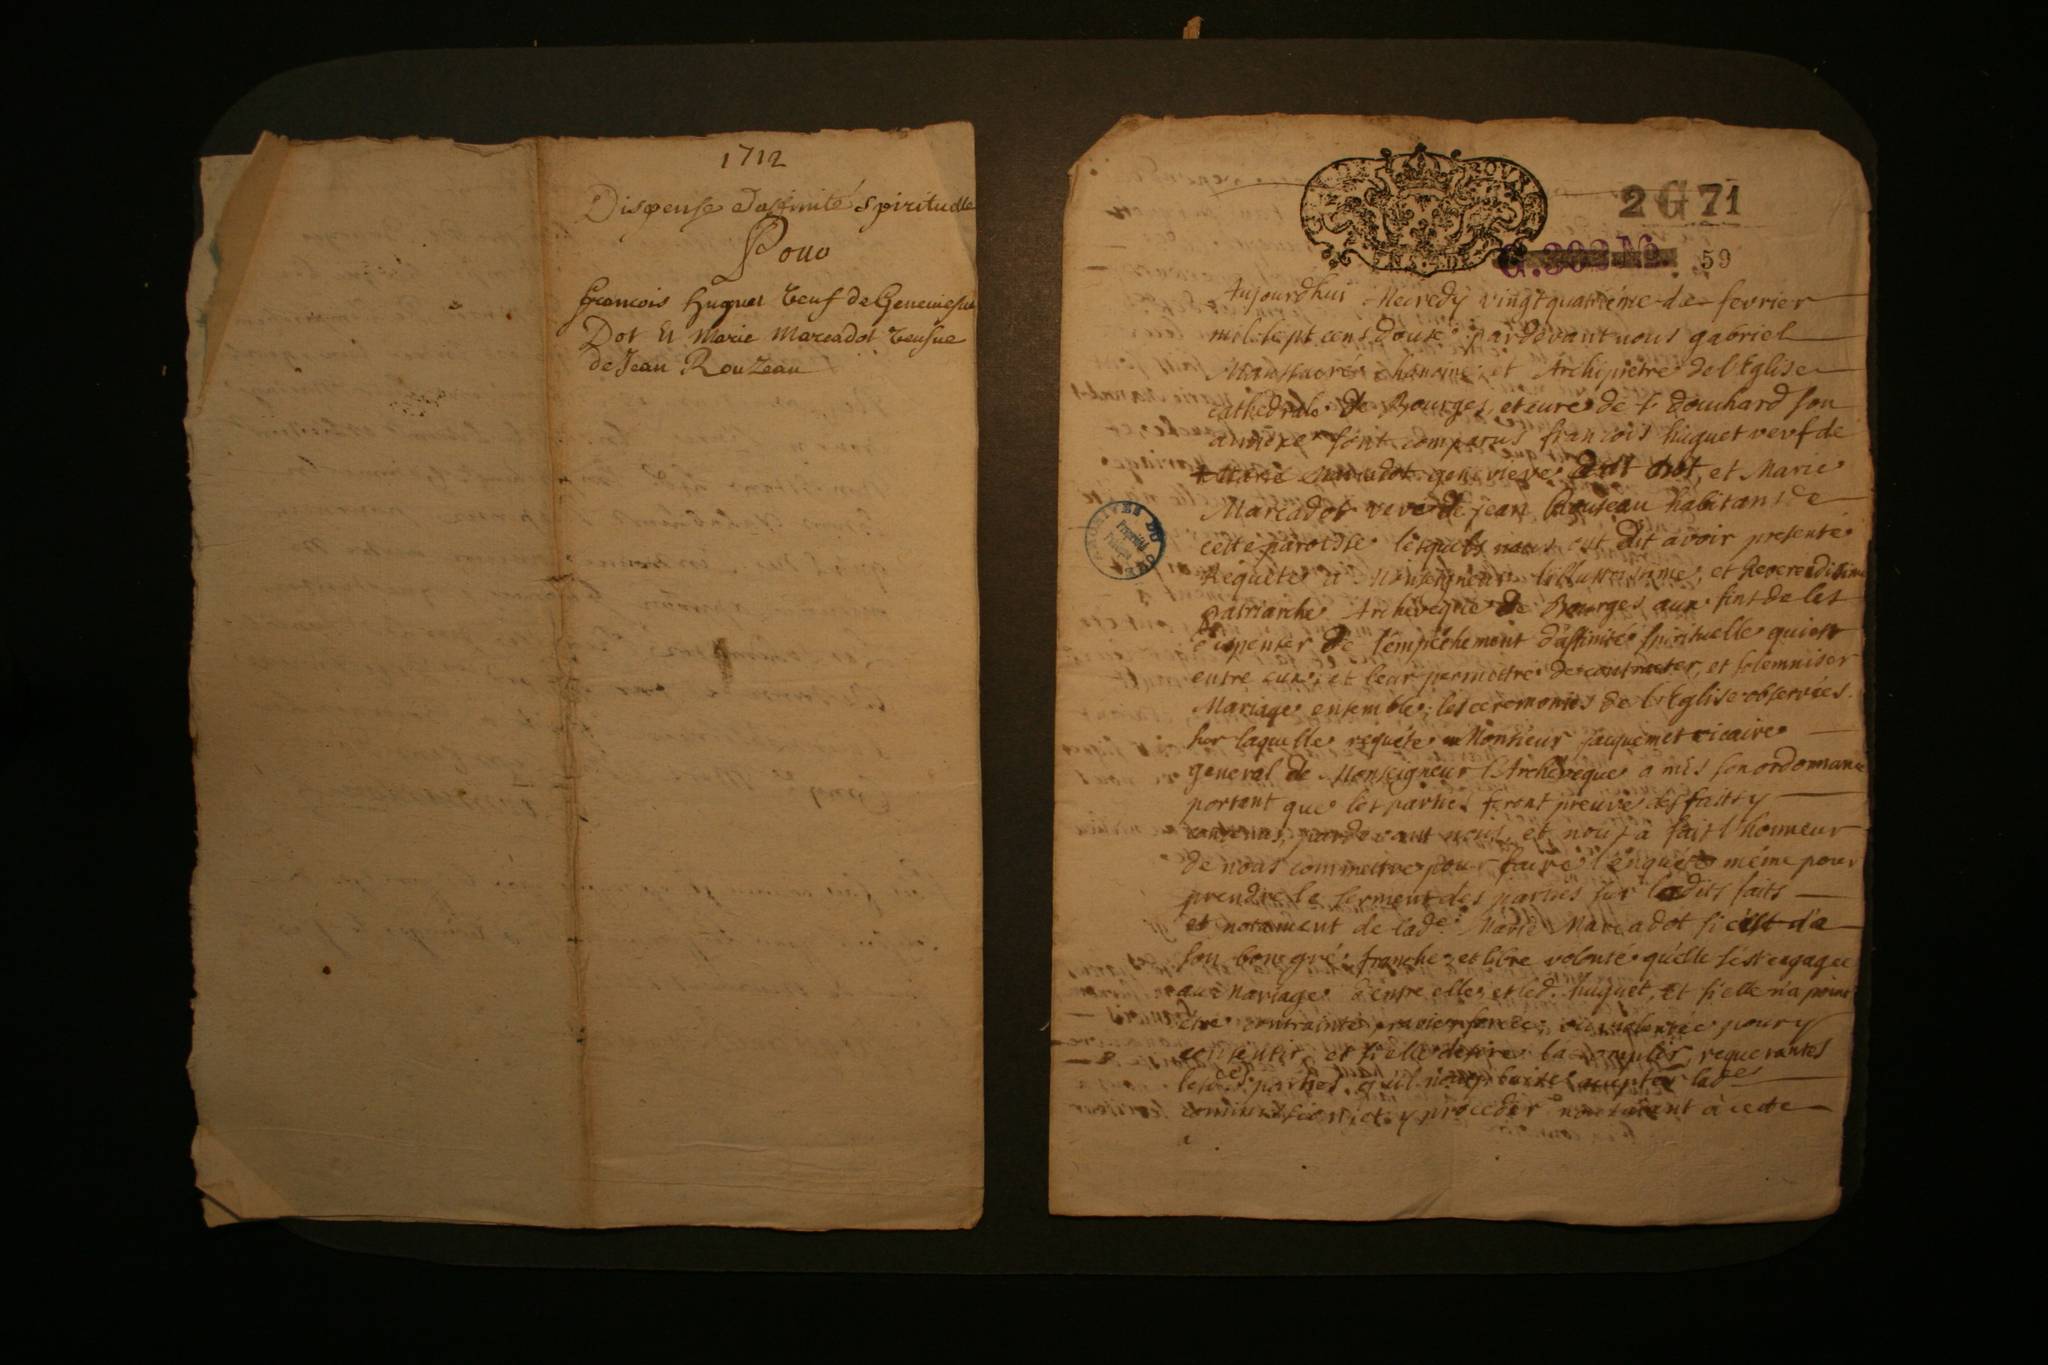 1712
Dispense d'affinité spirituelle
Pour
françois huguet veuf de Geneviesve
Dot et Marie Marcadot veufve
de Jean Rouzeau
2 G 71
G. 302
59
ARCHIVES DU CHER
Aujourdhui Mecredy vingtquatriéme de fevrier
mil sept cens douse pardevant nous gabriel
chanoine et Archiprétre de l'Eglise
cathedrale de Bourges, et curé de st douchard son
annexe sont comparus francois huguet veuf de
genevieve dot, et Marie
Marcadot veve de jean Rouseau habitans de
cette paroisse lesquels nous ont dit avoir presenté
Requéte à Monseigneur l'illustrissime, et Reverendissime
Patriarche Archevéque de Bourges aux fins de les
dispenser de l'empéchement d'affinité spirituelle qui est
entre eux, et leur permettre de contracter, et solemniser
Mariage ensemble, les ceremonies de l'Eglise observées.
sur laquelle requéte Monsieur jaquemet vicaire
general de Monseigneur l'Archeveque a mis son ordonnance
portant que les parties feront preuve des faits y
contenus, pardevant nous, et nous à fait l'honneur
de nous commettre pour faire l'enquéte méme pour
prendre le serment des parties sur lesdits faits
et notament de lade Marie Marcadot si c'est de
son bon gré, franche, et libre volonté qu'elle s'est engagée
au Mariage d'entre elle, et led. huguet, et si elle n'a point
été contrainte forcée, ou violentée pour y
consentir, et si elle desire l'accomplir, requerantes
lesdes parties qu'il nous plaise accepter lade
commission, et y proceder nous étant à cette